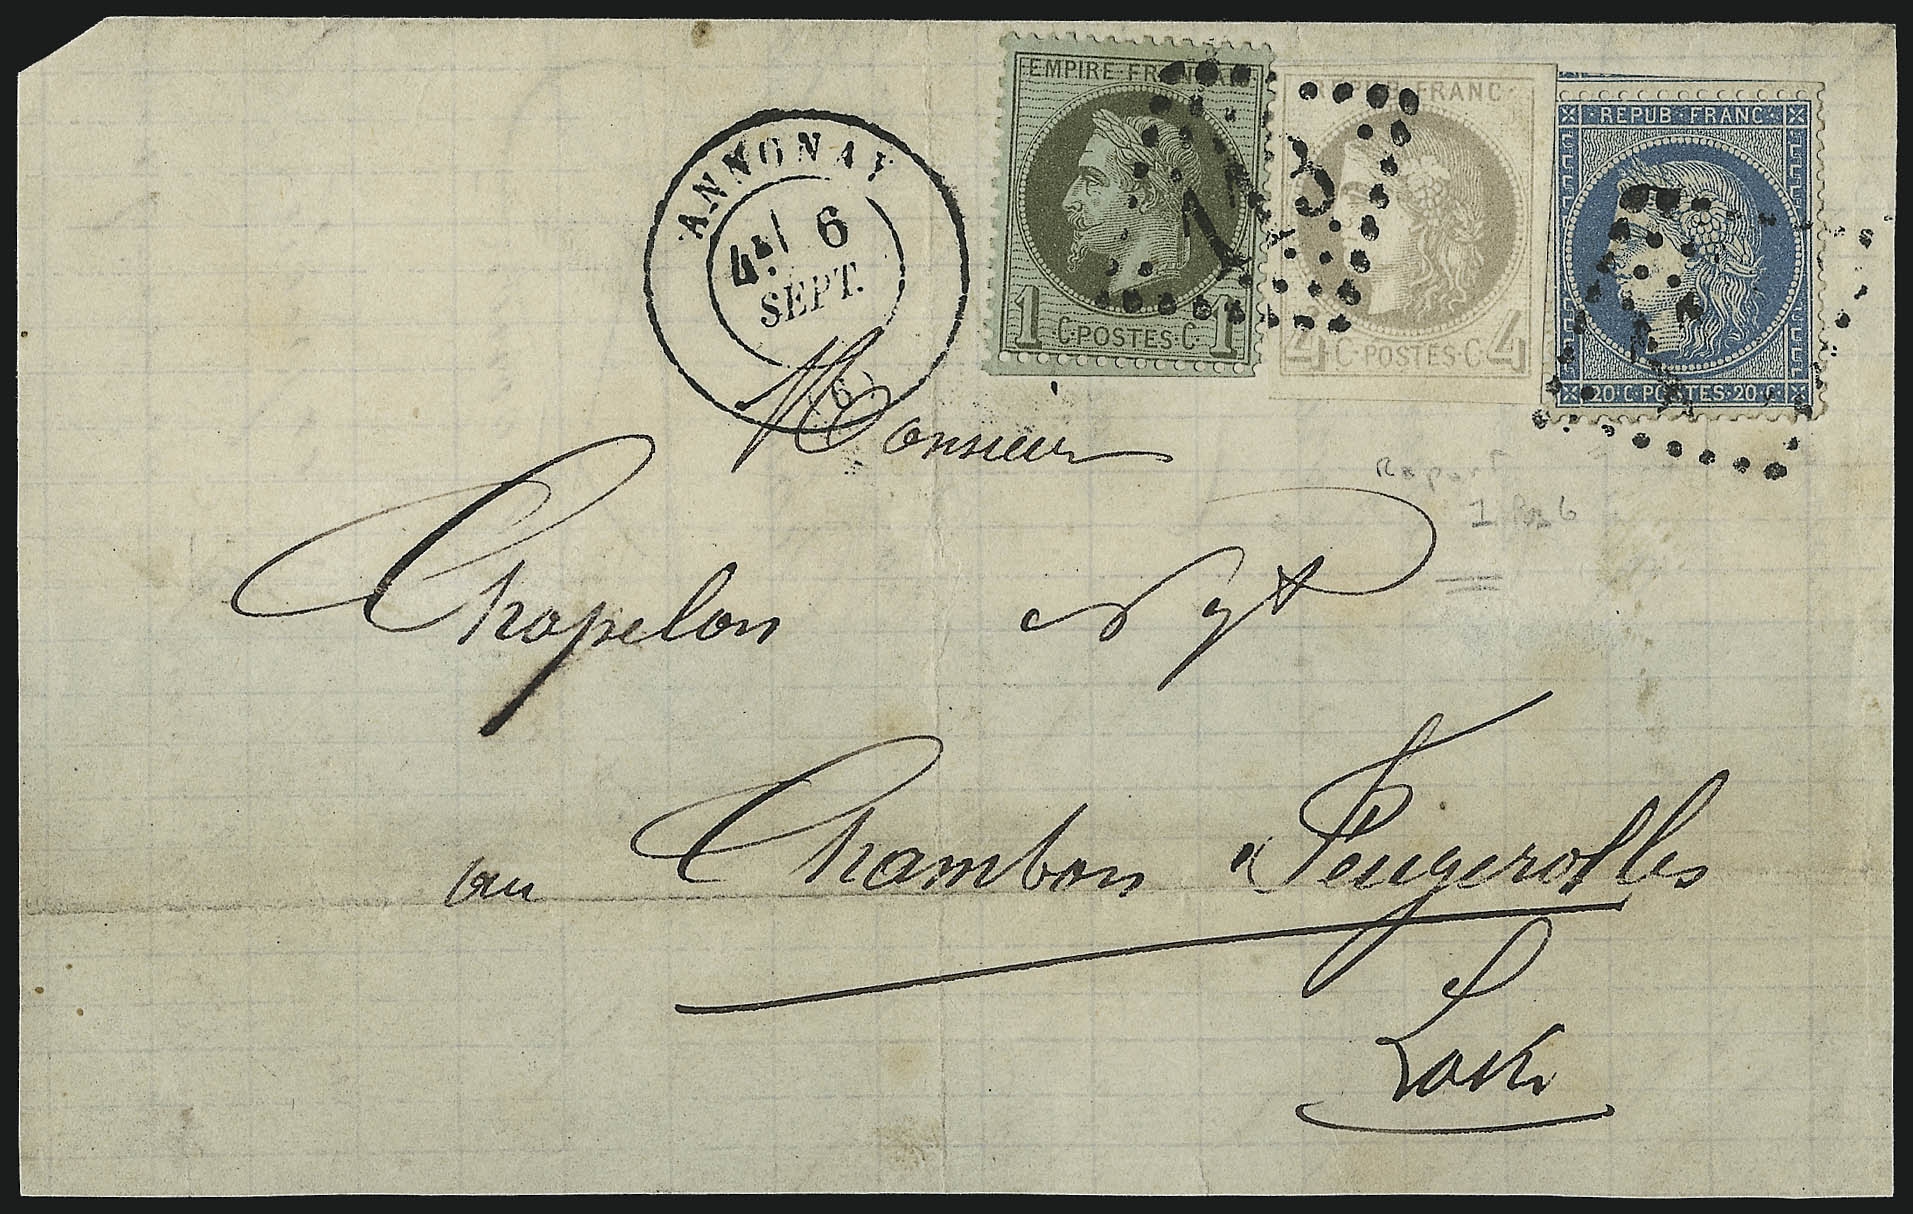 EMPIRE FRANÇAIS
1 C·POSTES·C 1
REPUB FRANC
4 C·POSTES·C 4
REPUB FRANC
20·C·POSTES·20·C
ANNONAY
6
SEPT.
(6)
Monsieur
Report
1 Pos 6
Chapelon Ngt
au Chambon Feugerolles
Loire